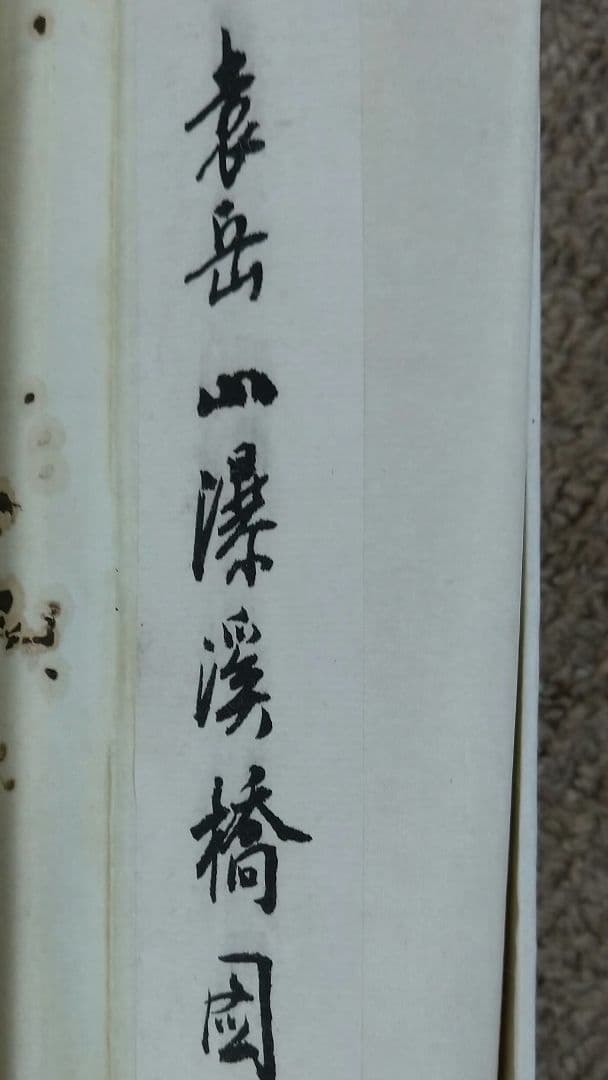 袁岳 山瀑溪橋圖